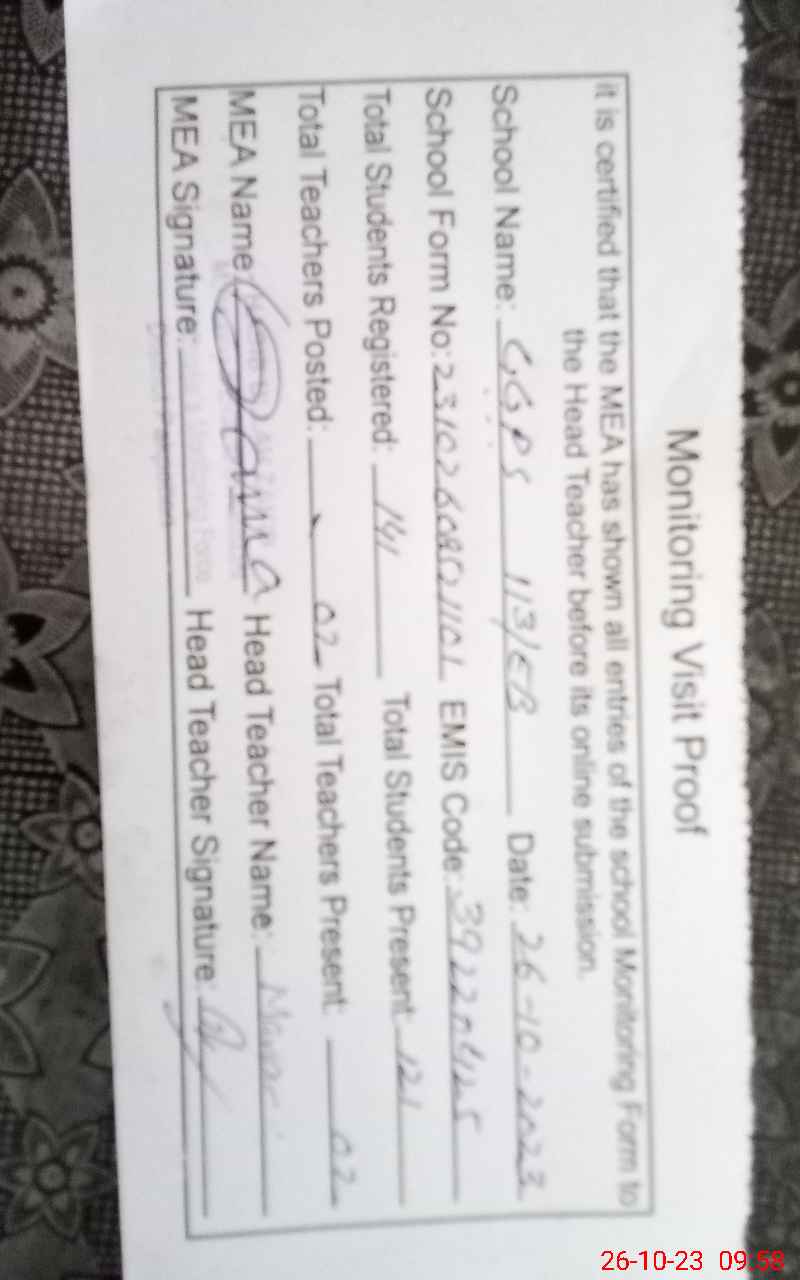 Monitoring Visit Proof
it is certified that the MEA has shown all entries of the school Monitoring Form to
the Head Teacher before its online submission.
School Name: GGPS 113/EB Date: 26-10-2023
School Form No: EMIS Code:
Total Students Registered: 141 Total Students Present: 121
Total Teachers Posted: 02 Total Teachers Present: 02
MEA Name: Head Teacher Name:
MEA Signature: Head Teacher Signature:
26-10-23 09:58